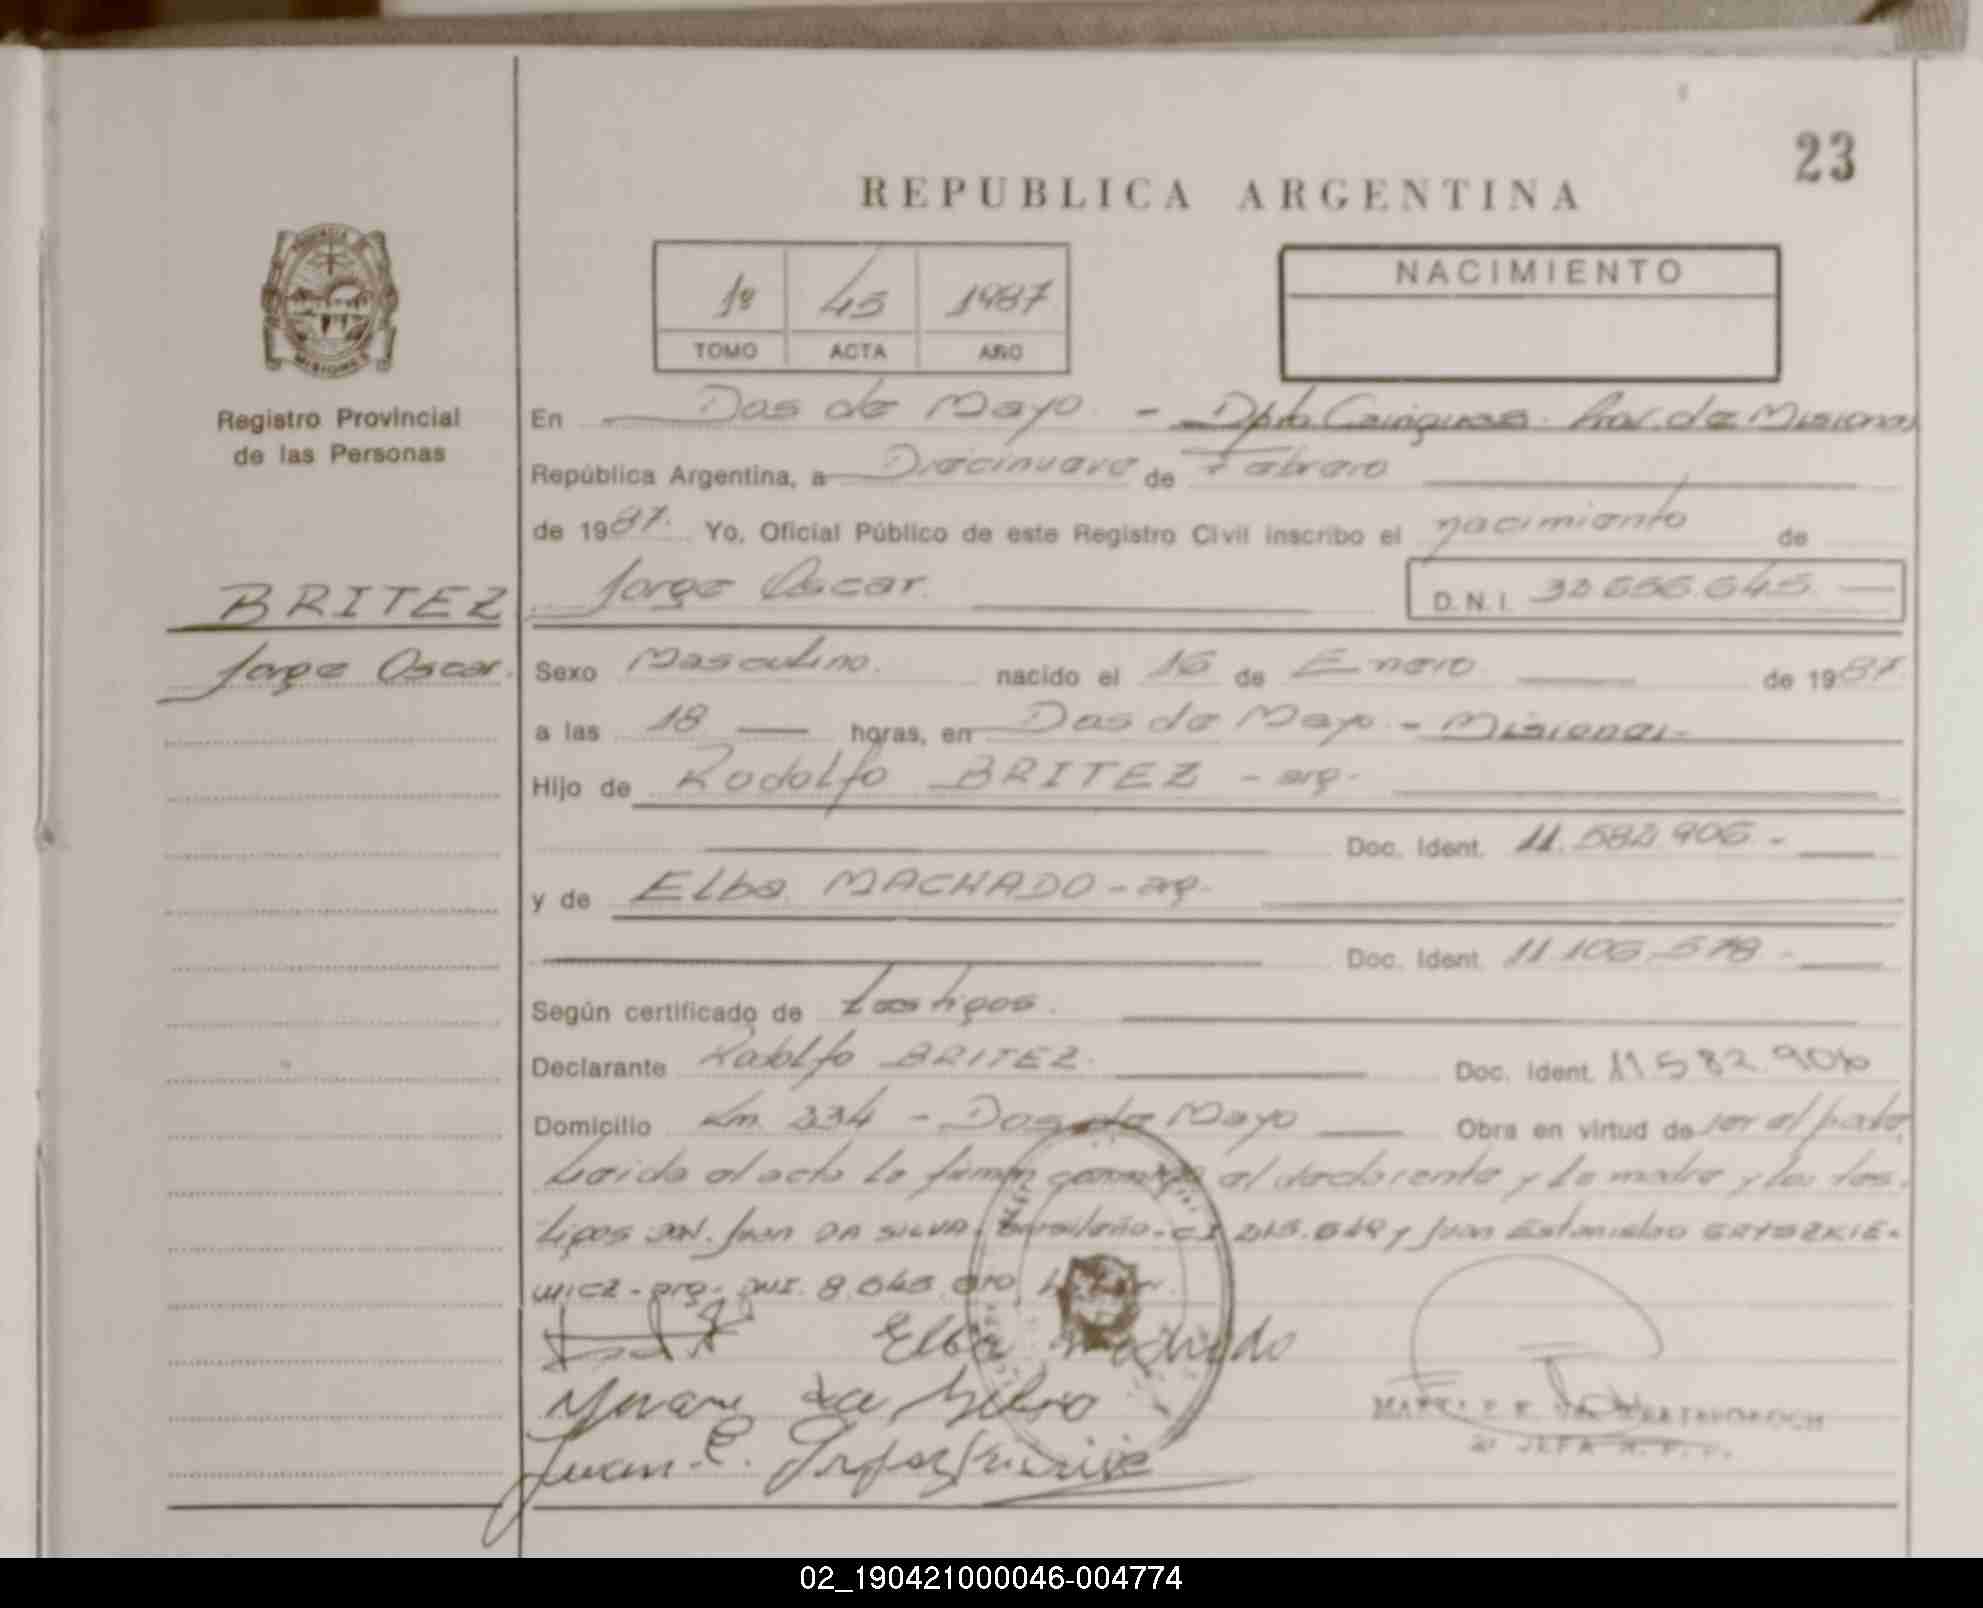 23
REPUBLICA ARGENTINA
1º 45 1987
TOMO ACTA AÑO
NACIMIENTO
PROVINCIA DE
MISIONES
Registro Provincial
de las Personas
En Dos de Mayo - Dpto. Cainguas. Prov. de Misiones
República Argentina, a Diecinueve de Febrero
de 1987. Yo, Oficial Público de este Registro Civil inscribo el nacimiento de
BRITEZ Jorge Oscar. D.N.I.
Jorge Oscar. Sexo Masculino. nacido el 16 de Enero de 1987.
a las 18 horas, en Dos de Mayo - Misiones-
Hijo de Rodolfo BRITEZ - arg.
Doc. Ident. 11.582.906.-
y de Elba MACHADO - arg.
Doc. Ident. 11.106.578.-
Según certificado de testigos.
Declarante Rodolfo BRITEZ. Doc. Ident. 11.582.906
Domicilio Km. 234 - Dos de Mayo Obra en virtud de ser el padre,
Leida el acta la firman conmigo el declarante y la madre y los tes-
tigos Juan DA SILVA - Brasileño - C.I. y Juan Estanislao
- arg. DNI. 8.
Elba Machado
da Silva
Juan E.
JEFA R. P. P.
02_190421000046-004774